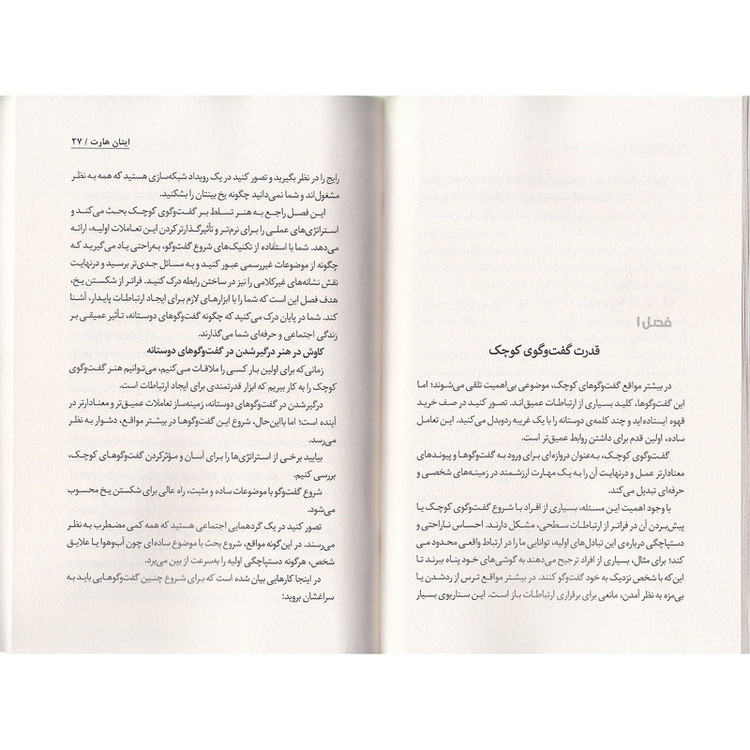 فصل ۱
قدرت گفت‌وگوی کوچک
در بیشتر مواقع گفت‌وگوهای کوچک، موضوعی بی‌اهمیت تلقی می‌شوند؛ اما
این گفت‌وگوها، کلید بسیاری از ارتباطات عمیق‌اند. تصور کنید در صف خرید
قهوه ایستاده اید و چند کلمه‌ی دوستانه را با یک غریبه ردوبدل می‌کنید. این تعامل
ساده، اولین قدم برای داشتن روابط عمیق‌تر است.
گفت‌وگوی کوچک، به‌عنوان دروازه‌ای برای ورود به گفت‌وگوها و پیوندهای
معنادارتر عمل و درنهایت آن را به یک مهارت ارزشمند در زمینه‌های شخصی و
حرفه‌ای تبدیل می‌کند.
با وجود اهمیت این مسئله، بسیاری از افراد با شروع گفت‌وگوی کوچک یا
پیش‌بردن آن در فراتر از ارتباطات سطحی، مشکل دارند. احساس ناراحتی و
دستپاچگی درباره‌ی این تبادل‌های اولیه، توانایی ما را در ارتباط واقعی محدود می
کند؛ برای مثال، بسیاری از افراد ترجیح می‌دهند به گوشی‌های خود پناه ببرند تا
این‌که با شخص نزدیک به خود گفت‌وگو کنند. در بیشتر مواقع ترس از ردشدن یا
بی‌مزه به نظر آمدن، مانعی برای برقراری ارتباطات باز است. این سناریوی بسیار
ایتان هارت / ۲۷
رایج را در نظر بگیرید و تصور کنید در یک رویداد شبکه‌سازی هستید که همه به نظر
مشغول‌اند و شما نمی‌دانید چگونه یخ بینتان را بشکنید.
این فصل راجع به هنر تسلط بر گفت‌وگوی کوچک بحث می‌کند و
استراتژی‌های عملی را برای نرم‌تر و تأثیرگذارتر کردن این تعاملات اولیه، ارائه
می‌دهد. شما با استفاده از تکنیک‌های شروع گفت‌وگو، به‌راحتی یاد می‌گیرید که
چگونه از موضوعات غیررسمی عبور کنید و به مسائل جدی‌تر برسید و درنهایت
نقش نشانه‌های غیرکلامی را نیز در ساختن رابطه درک کنید. فراتر از شکستن یخ،
هدف فصل این است که شما را با ابزارهای لازم برای ایجاد ارتباطات پایدار، آشنا
کند. شما در پایان درک می‌کنید که چگونه گفت‌وگوهای دوستانه، تأثیر عمیقی بر
زندگی اجتماعی و حرفه‌ای شما می‌گذارند.
کاوش در هنر درگیرشدن در گفت‌وگوهای دوستانه
زمانی‌که برای اولین بار کسی را ملاقات می‌کنیم، می‌توانیم هنر گفت‌وگوی
کوچک را به کار ببریم که ابزار قدرتمندی برای ایجاد ارتباطات است.
درگیرشدن در گفت‌وگوهای دوستانه، زمینه‌ساز تعاملات عمیق‌تر و معنادارتر در
آینده است؛ اما بااین‌حال، شروع این گفت‌وگوها در بیشتر مواقع، دشوار به نظر
می‌رسد.
بیایید برخی از استراتژی‌ها را برای آسان و مؤثرکردن گفت‌وگوهای کوچک،
بررسی کنیم.
شروع گفت‌وگو با موضوعات ساده و مثبت، راه عالی برای شکستن یخ محسوب
می‌شود.
تصور کنید در یک گردهمایی اجتماعی هستید که همه کمی مضطرب به نظر
می‌رسند. در این‌گونه مواقع، شروع بحث با موضوع ساده‌ای چون آب‌وهوا یا علایق
شخص، هرگونه دستپاچگی اولیه را به‌سرعت از بین می‌برد.
در اینجا کارهایی بیان شده است که برای شروع چنین گفت‌وگوهایی باید به
سراغشان بروید: